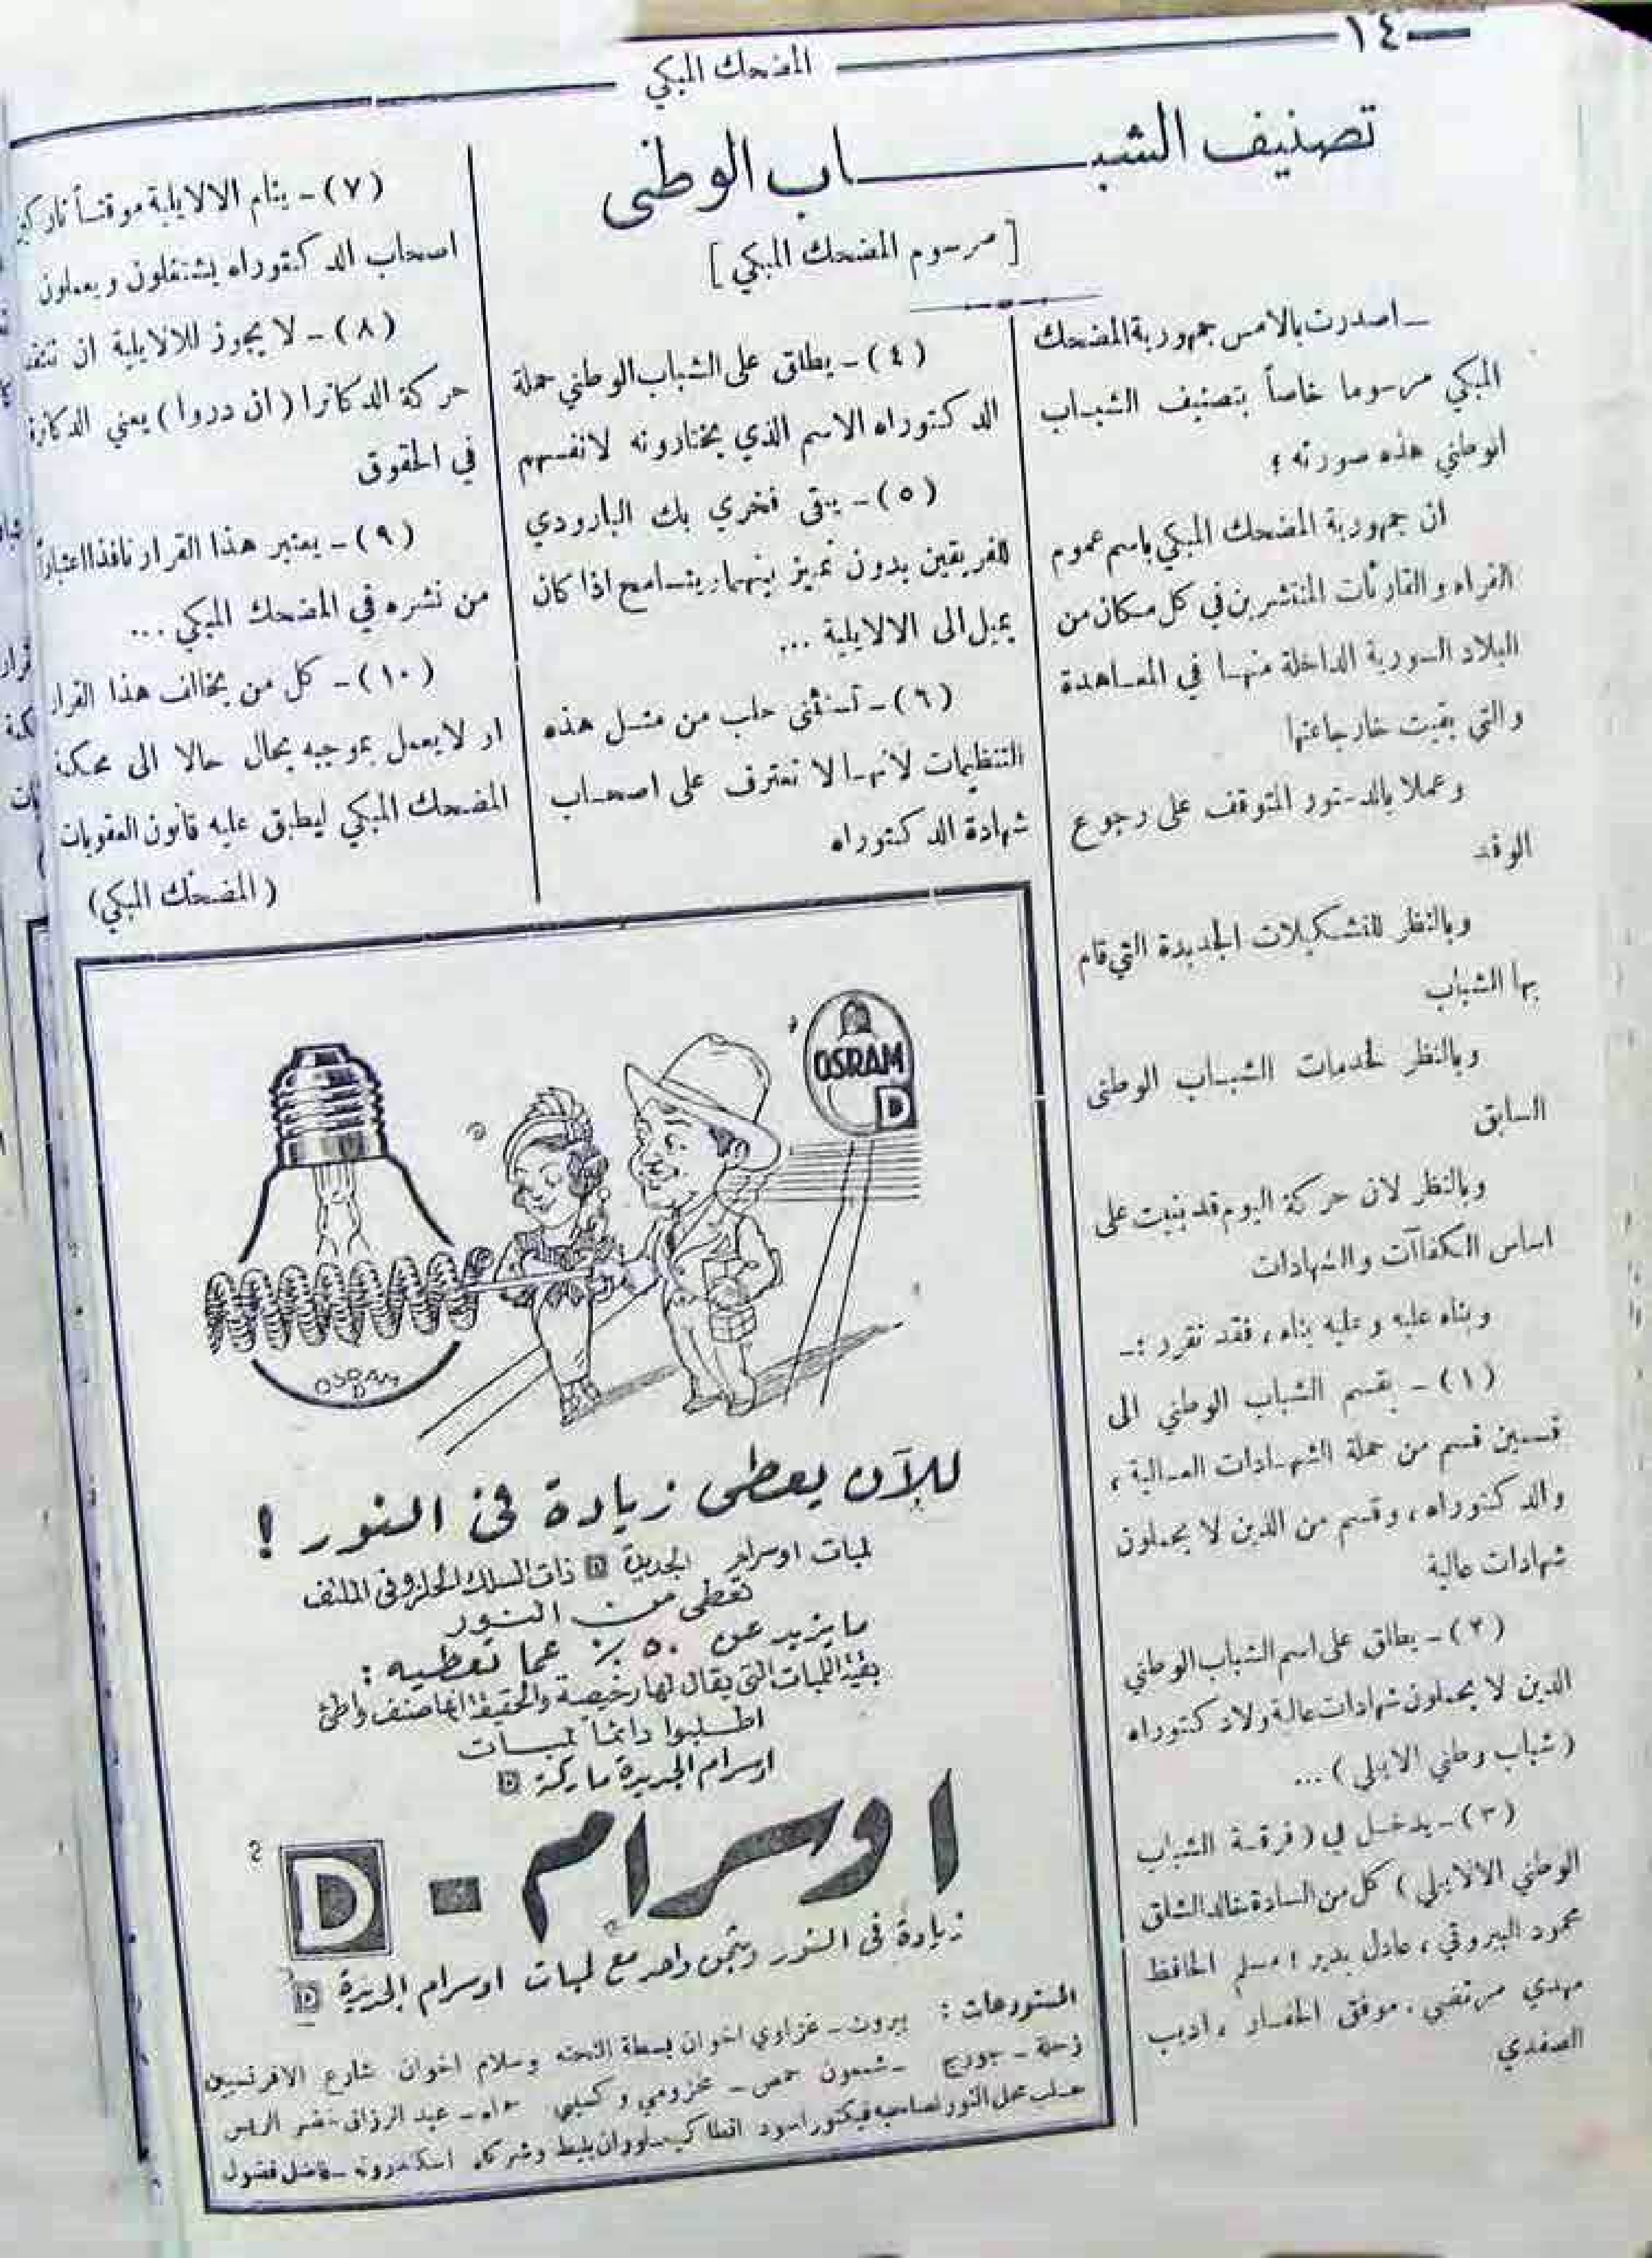 ١٤
المضحك المبكي
تصنيف الشبـــاب الوطني
[ مرسوم المضحك المبكي ]
ـ اصدرت بالامس جمهورية المضحك
المبكي مرسوما خاصاً بتصنيف الشباب
الوطني هذه صورته ؛
ان جمهورية المضحك المبكي باسم عموم
القراء والقارئات المنتشرين في كل مكان من
البلاد السورية الداخلة منها في المعاهدة
والتي بقيت خارجا عنها
وعملا بالدستور المتوقف على رجوع
الوفد
وبالنظر للتشكيلات الجديدة التي قام
بها الشباب
وبالنظر لخدمات الشباب الوطني
السابق
وبالنظر لان حركة اليوم قد بنيت على
اساس الكفاآت والشهادات
وبناء عليه وعليه بناء ، فقد تقرر :ـ
(١) ـ يقسم الشباب الوطني الى
قسمين قسم من حملة الشهادات العالية ،
والدكتوراه ، وقسم من الذين لا يحملون
شهادات عالية
(٢) ـ يطلق على اسم الشباب الوطني
الذين لا يحملون شهادات عالية ولا دكتوراه
( شباب وطني الايلي ) ...
(٣) ـ يدخل في ( فرقة الشباب
الوطني الالايلي ) كل من السادة خالد الشلق
محمود البيروتي ، عادل بدير ؛ مسلم الحافظ
مهدي مرتضى . موفق الحفار ، اديب
الصفدي
(٤) ـ يطلق على الشباب الوطني حملة
الدكتوراه الاسم الذي يختارونه لانفسهم
(٥) ـ يبقى فخري بك البارودي
للفريقين بدون تمييز بينهما ويتسامح اذا كان
يميل الى الالايلية ...
(٦) ـ تستثنى حلب من مثل هذه
التنظيمات لانها لا تعترف على اصحاب
شهادة الدكتوراه
(٧) ـ ينام الالايلية موقتاً تاركين
اصحاب الدكتوراه يشتغلون ويعملون
(٨) ـ لا يجوز للالايلية ان تنتقد
حركة الدكاترا ( ان دروا ) يعني الدكاترة
في الحقوق
(٩) ـ يعتبر هذا القرار نافذا اعتباراً
من نشره في المضحك المبكي ...
(١٠) ـ كل من يخالف هذا القرار
او لا يعمل بموجبه يحال حالا الى محكمة
المضحك المبكي ليطبق عليه قانون العقوبات
( المضحك المبكي )
OSRAM
D
OSRAM
D
للآن يعطى زيادة فى النور !
لمبات اوسرام الجديدة D ذات السلك الحلزونى الملتف
تعطى من النور
ما يزيد عن ٥٠ ٪ عما تعطيه :
بقية اللمبات التى يقال لها رخيصة والحقيقة انها صنف واطئ
اطلبوا دائماً لمبات
اوسرام الجديدة ماركة D
اوسرام - D
زيادة فى النور وبثمن واحد مع لمبات اوسرام الجديدة D
المستودعات : بيروت ـ غزاوي اخوان بسطة التحته وسلام اخوان شارع الافرنسيين
زحلة ـ جورج شمعون حمص ـ مخزومي وكسيبي حماه ـ عبد الرزاق خضر الريس
حلب محل النور لصاحبه فيكتور اسود انطاكيه وشركاه اسكندرونه ـ فاضل فضول